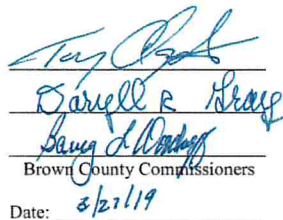 Tony
Daryll R Gray
Barry L Woodruff
Brown County Commissioners
Date: 3/27/19